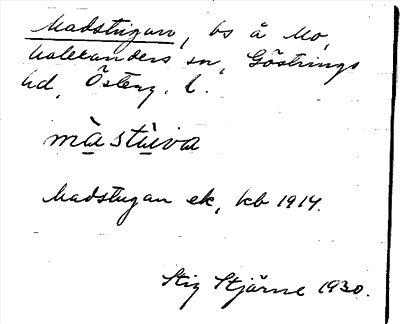 Madstugan, bs å Mo,
Walexanders sn, Göstrings
hd, Österg. l.
màstùva
Madstugan ek, kb 1914.
Stig Stjärne 1930.